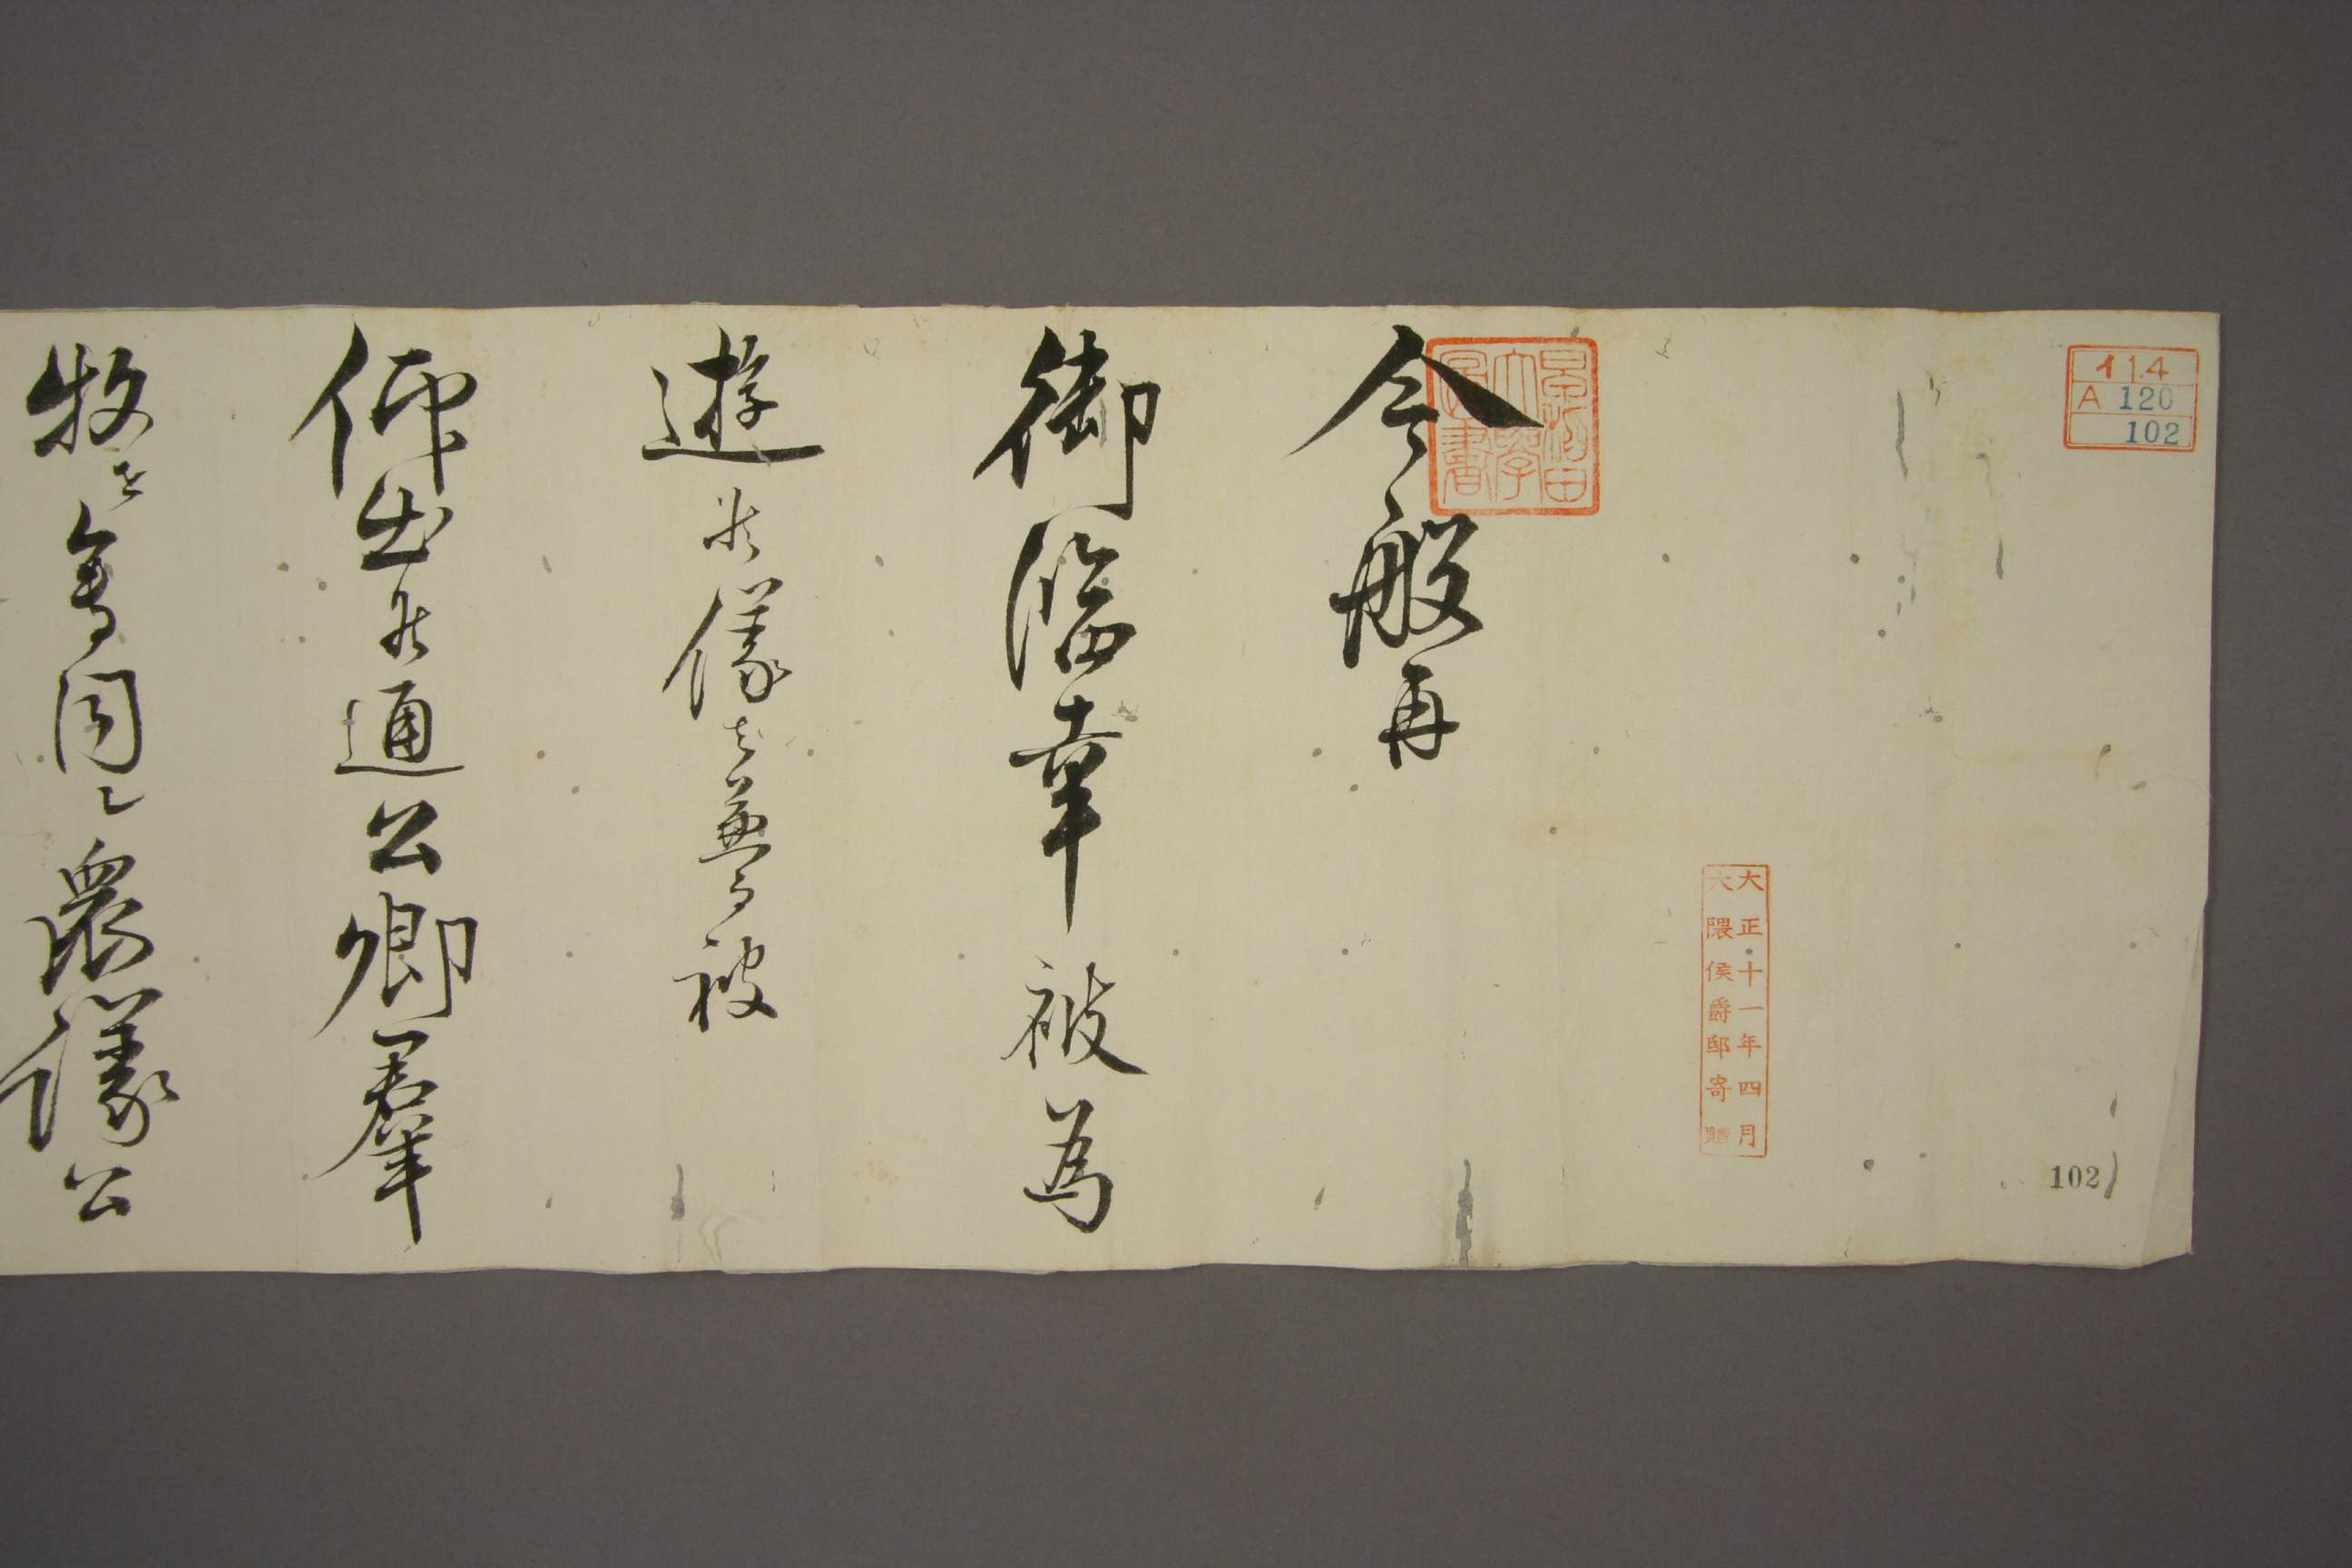 イ14
A 120
102
早稲田
大学
図書
大正十一年四月
大隈侯爵邸寄贈
102
今般再
御臨幸被為
遊候儀者兼而被
仰出候通公卿羣
牧を會同し衆議公